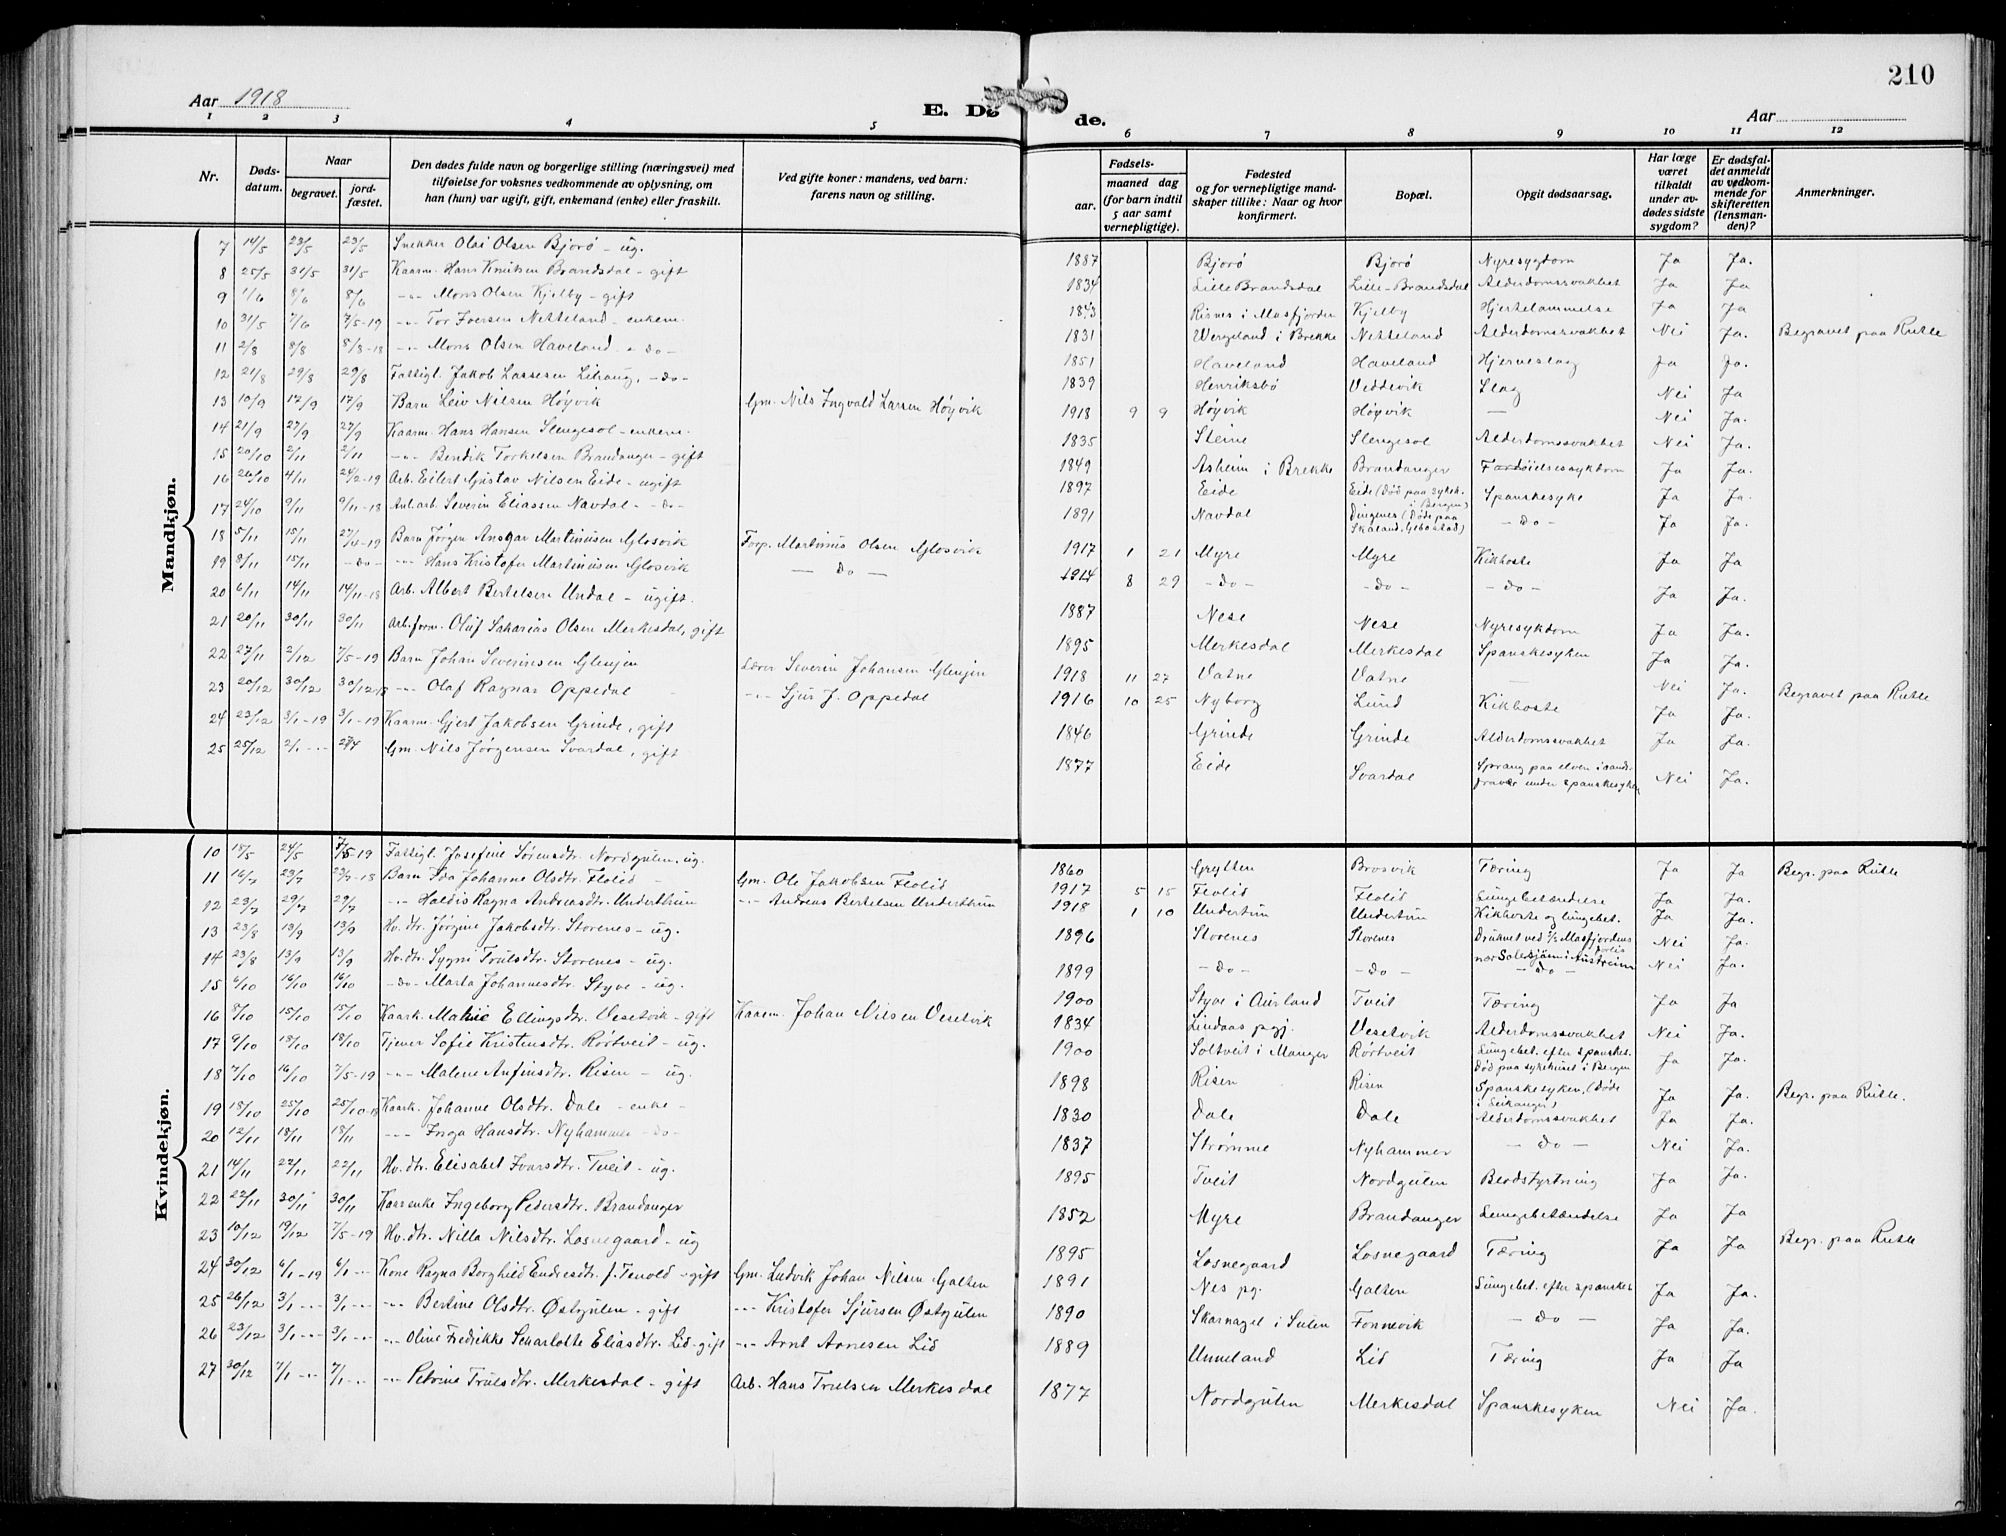 210
Aar 1918
E. Dø
de.
Aar
1 2 3 4 5 6 7 8 9 10 11 12
Nr.
Døds-
datum.
Naar
begravet.
jord-
fæstet.
Den dødes fulde navn og borgerlige stilling (næringsvei) med
tilføielse for voksnes vedkommende av oplysning, om
han (hun) var ugift, gift, enkemand (enke) eller fraskilt.
Ved gifte koner: mandens, ved barn:
farens navn og stilling.
Fødsels-
aar.
maaned dag
(for barn indtil
5 aar samt
vernepligtige).
Fødested
og for vernepligtige mand-
skaper tillike: Naar og hvor
konfirmert.
Bopæl.
Opgit dødsaarsag.
Har læge
været
tilkaldt
under av-
dødes sidste
sygdom?
Er dødsfal-
det anmeldt
av vedkom-
mende for
skifteretten
(lensman-
den)?
Anmerkninger.
Mandkjøn.
7 14/5 23/5 23/5 Snekker Olai Olsen Bjorø - ug. 1887 Bjorø Bjorø Nyresygdom Ja Ja.
8 25/5 31/5 31/5 Kaarm. Hans Knutsen Brandsdal - gift 1834 Lille Brandsdal Lille-Brandsdal Alderdomssvakhet Ja Ja
9 1/6 8/6 8/6 -"- Mons Olsen Kjelby - gift 1843 Risnes i Masfjorden Kjelby Hjertelammelse Ja Ja
10 31/5 7/6 7/5-19 -"- Tor Iversen Netteland - enkem. 1831 Wergeland i Brekke Netteland Alderdomssvakhet Nei Ja. Begravet paa Rutle
11 2/8 8/8 8/8-18 -"- Mons Olsen Haveland - do - 1851 Haveland Haveland Hjerneslag Ja Ja.
12 21/8 29/8 29/8 Fattigl. Jakob Lassesen Lihaug, -do- 1839 Henriksbø Veddevik Slag Nei Ja
13 10/9 17/9 17/9 Barn Leiv Nilsen Høyvik Gm. Nils Ingvald Larsen Høyvik 1918 9 9 Høyvik Høyvik — Nei Ja.
14 21/9 27/9 27/9 Kaarm. Hans Hansen Slengesol - enkem. 1835 Steine Slengesol Alderdomssvakhet Nei Ja.
15 20/10 2/11 2/11 -"- Bendik Torkelsen Brandanger - gift 1849 Asheim i Brekke Brandanger Fordøielsessykdom Ja Ja.
16 26/10 4/11 24/2-19 Arb. Eilert Gustav Nilsen Eide - ugift 1897 Eide Eide (Død paa sykeh. i Bergen) Spanskesyke Ja Ja.
17 24/10 9/11 9/11-18 Anl.arb. Severin Eliassen Navdal - do - 1891 Navdal Dingenes (Døde paa Skaland, Gibostad) - do - Ja Ja.
18 5/11 15/11 27/4-19 Barn Jørgen Ansgar Martinusen Glosvik Forp. Martinus Olsen Glosvik 1917 1 21 Myre Myre Kikhoste Ja Ja
19 8/11 15/11 -do- -"- Hans Kristofer Martinusen Glosvik - do - 1914 8 29 - do - - do - - do - Ja Ja.
20 6/11 14/11 14/11-18 Arb. Albert Bertelsen Undal - ugift. 1887 Nese Nese Nyresykdom Ja Ja.
21 20/11 30/11 30/11 Arb.form. Oluf Sakarias Olsen Merkesdal, gift 1895 Merkesdal Merkesdal Spanskesyken Ja Ja.
22 27/11 2/12 7/5-19 Barn Johan Severinsen Glenjen Lærer Severin Johansen Glenjen 1918 11 27 Vatne Vatne — Nei Ja. Begravet paa Rutle
23 20/12 30/12 30/12-18 -"- Olaf Ragnar Oppedal -"- Sjur J. Oppedal 1916 10 25 Nyborg Lund Kikhoste Ja Ja.
24 23/12 3/1-19 3/1-19 Kaarm. Gjert Jakobsen Grinde, gift 1846 Grinde Grinde Alderdomssvakhet Ja Ja.
25 25/12 2/1 -"- 27/4 Gm. Nils Jørgensen Svardal, gift 1877 Eide Svardal Sprang paa elven i aands-
fravær under spanskesyken Nei Ja.
Kvindekjøn.
10 18/5 24/5 7/5-19 Fattigl. Josefine Sørensdtr. Nordgulen, ug. 1860 Grytten Brosvik Tæring Ja Ja Begr. paa Rutle
11 16/7 23/7 23/7-18 Barn Ida Johanne Olsdtr. Flolid Gm. Ole Jakobsen Flolid 1917 5 15 Flolid Flolid Lungebetændelse Ja Ja.
12 23/7 29/7 29/7 -"- Haldis Ragna Andreasdtr. Underthun -"- Andreas Bertelsen Underthun 1918 1 10 Undertun Undertun Kikhoste og lungebet. Ja Ja.
13 23/8 13/9 13/9 Hv.dtr. Jørgine Jakobsdtr. Storenes - ug. 1896 Storenes Storenes Druknet ved Masfjordens
nær Solesjøen i Austreim Nei Ja.
14 23/8 13/9 13/9 Hv.dtr. Sygni Trulsdtr. Storenes - ug. 1899 - do - - do - - do - Nei Ja.
15 6/10 16/10 16/10 -do- Marta Johannesdtr. Styve - ug. 1900 Styve i Aurland Tveit Tæring Ja Ja
16 8/10 15/10 15/10 Kaark. Malene Ellingsdtr. Veselvik - gift Kaarm. Johan Nilsen Veselvik 1834 Lindaas pgj. Veselvik Alderdomssvakhet Nei Ja.
17 9/10 18/10 18/10 Tjener Sofie Kristensdtr. Rørtveit - ug. 1900 Soltveit i Manger Rørtveit Lungebet. efter spanskes.
Død paa sykehuset i Bergen Ja Ja.
18 7/10 16/10 7/5-19 -"- Malene Anfinsdtr. Risen - ug. 1898 Risen Risen Spanskesyken, (Døde
i Leikanger) Ja Ja. Begr. paa Rutle.
19 18/10 25/10 25/10-18 Kaark. Johanne Olsdtr. Dale - enke - 1830 Dale Dale Alderdomssvakhet Ja Ja.
20 12/11 18/11 18/11 -"- Inga Hansdtr. Nyhammer - do - 1837 Strømme Nyhammer - do - Nei Ja.
21 14/11 22/11 22/11 Hv.dtr. Elisabet Ivarsdtr. Tveit - ug. 1895 Tveit Nordgulen Blodstyrtning Ja Ja.
22 22/11 30/11 30/11 Kaarenke Ingeborg Pedersdtr. Brandanger 1852 Myre Brandanger Lungebetændelse Ja Ja
23 10/12 19/12 7/5-19 Hv.dtr. Nilla Nilsdtr. Losnegaard - ug 1895 Losnegaard Losnegaard Tæring Ja Ja Begr. paa Rutle
24 30/12 6/1-19 6/1 -"- Kone Ragna Borghild Endresdtr. f. Tenold - gift Gm. Ludvik Johan Nilsen Galten 1891 Nes pg. Galten Lungebet. efter spanskes Ja Ja.
25 26/12 3/1 -"- 3/1 -"- -"- Bertine Olsdtr. Østgulen - gift -"- Kristofer Sjursen Østgulen 1890 Skarnagel i Sulen Fonnevik - do - Ja Ja.
26 23/12 3/1 -"- 3/1 -"- -"- Oline Fredrikke Scharlotte Eliasdtr. Lid - gift -"- Arnt Arnesen Lid 1889 Unneland Lid Tæring Ja Ja
27 30/12 7/1 -"- 7/1 -"- -"- Petrine Trulsdtr. Merkesdal - gift Arb. Hans Trulsen Merkesdal 1877 Nordgulen Merkesdal Spanskesyken Nei Ja.